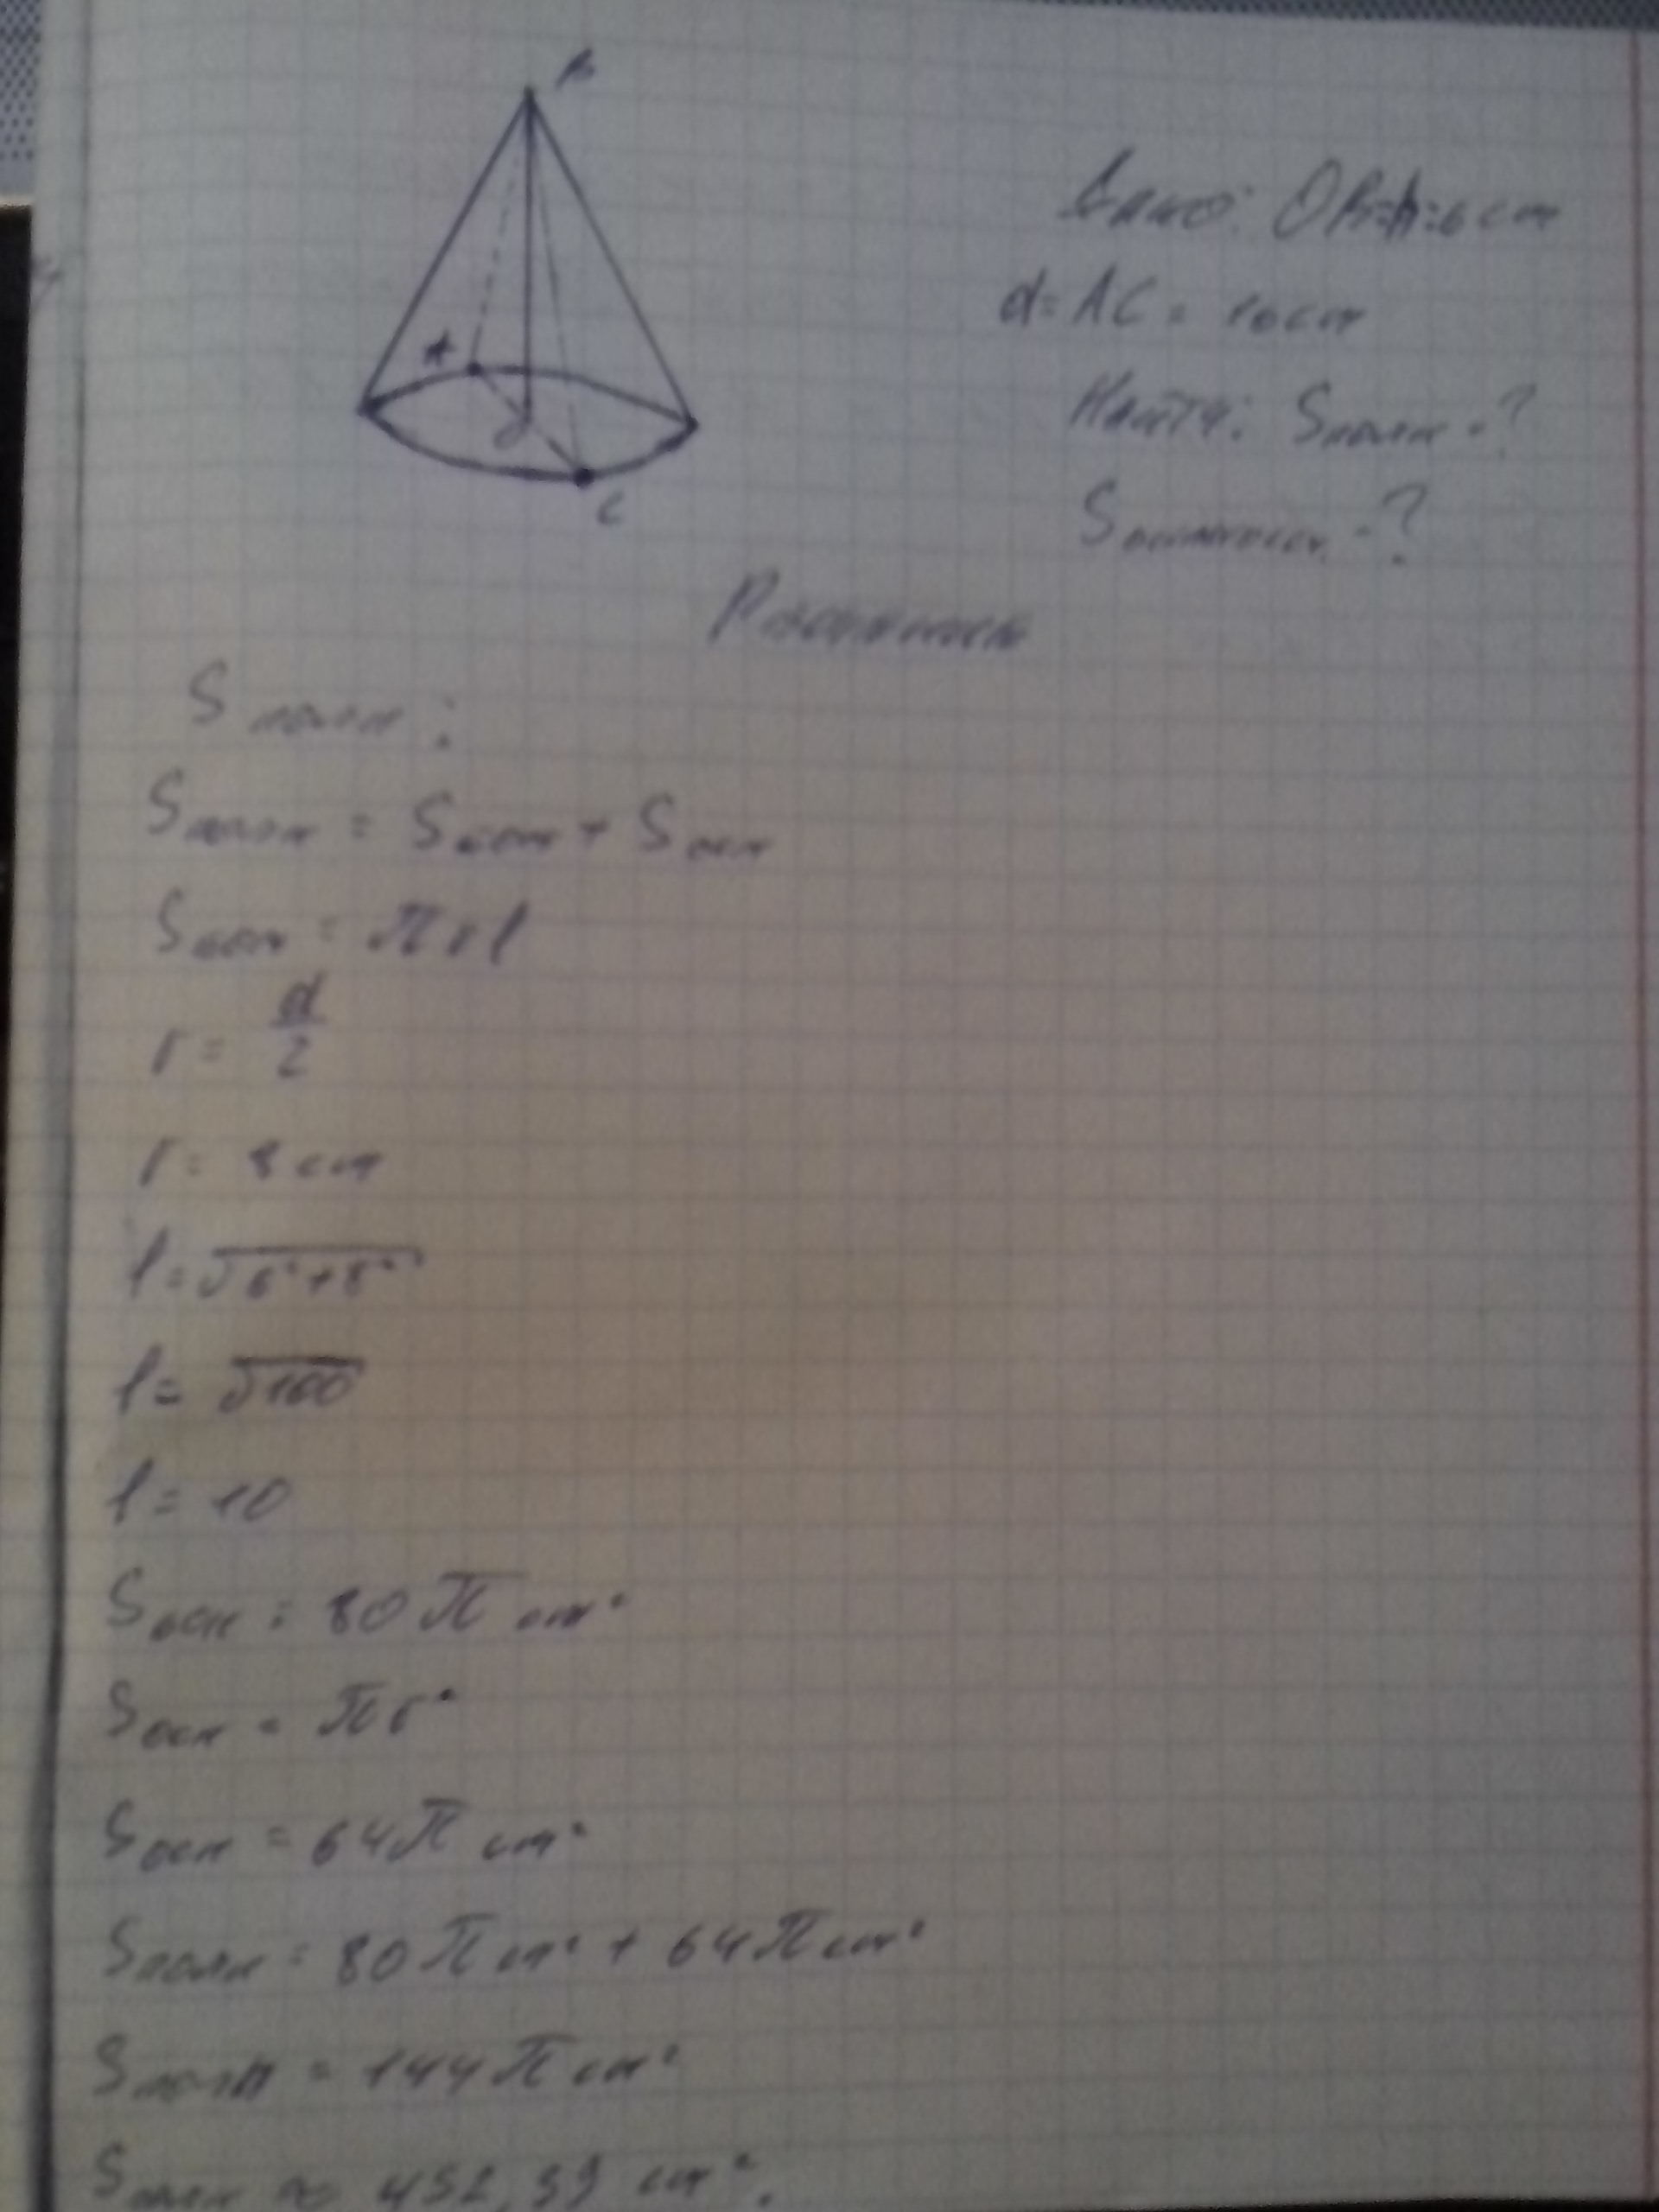 B
A
O
C
Дано: OB=h=6 cm
d= AC = 16cm
Найти: Sполн -?
S -?
Решение
S полн:
Sполн = Sбок + Sосн
Sбок = πrl
r = d/2
r = 8 cm
l = √6²+8²
l = √100
l = 10
Sосн = 80π cm²
Sосн = πr²
Sосн = 64π cm²
Sполн = 80π cm² + 64π cm²
Sполн = 144π cm²
Sполн ≈ 452,39 cm².